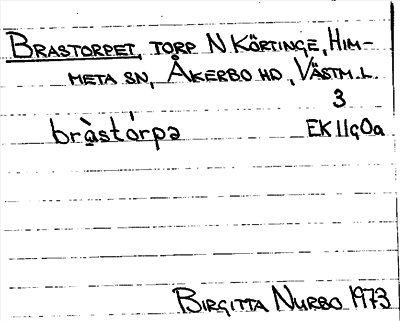 BRASTORPET, TORP N KÖRTINGE, HIM-
META SN, ÅKERBO HD, VÄSTM.L.
3
brà̱stórpə EK 11g0a
BIRGITTA NURBO 1973